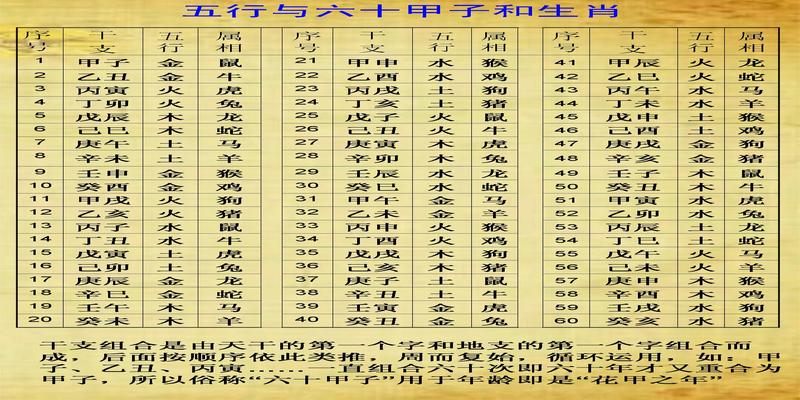 五行与六十甲子和生肖
序号 干支 五行 属相 序号 干支 五行 属相 序号 干支 五行 属相
1 甲子 金 鼠 21 甲申 水 猴 41 甲辰 火 龙
2 乙丑 金 牛 22 乙酉 水 鸡 42 乙巳 火 蛇
3 丙寅 火 虎 23 丙戌 土 狗 43 丙午 水 马
4 丁卯 火 兔 24 丁亥 土 猪 44 丁未 水 羊
5 戊辰 木 龙 25 戊子 火 鼠 45 戊申 土 猴
6 己巳 木 蛇 26 己丑 火 牛 46 己酉 土 鸡
7 庚午 土 马 27 庚寅 木 虎 47 庚戌 金 狗
8 辛未 土 羊 28 辛卯 木 兔 48 辛亥 金 猪
9 壬申 金 猴 29 壬辰 水 龙 49 壬子 木 鼠
10 癸酉 金 鸡 30 癸巳 水 蛇 50 癸丑 木 牛
11 甲戌 火 狗 31 甲午 金 马 51 甲寅 水 虎
12 乙亥 火 猪 32 乙未 金 羊 52 乙卯 水 兔
13 丙子 水 鼠 33 丙申 火 猴 53 丙辰 土 龙
14 丁丑 水 牛 34 丁酉 火 鸡 54 丁巳 土 蛇
15 戊寅 土 虎 35 戊戌 木 狗 55 戊午 火 马
16 己卯 土 兔 36 己亥 木 猪 56 己未 火 羊
17 庚辰 金 龙 37 庚子 土 鼠 57 庚申 木 猴
18 辛巳 金 蛇 38 辛丑 土 牛 58 辛酉 木 鸡
19 壬午 木 马 39 壬寅 金 虎 59 壬戌 水 狗
20 癸未 木 羊 40 癸丑 金 兔 60 癸亥 水 猪
干支组合是由天干的第一个字和地支的第一个字组合而
成，后面按顺序依此类推，周而复始，循环运用，如：甲
子、乙丑、丙寅……一直组合六十次即六十年才又重合为
甲子，所以俗称“六十甲子”用于年龄即是“花甲之年”